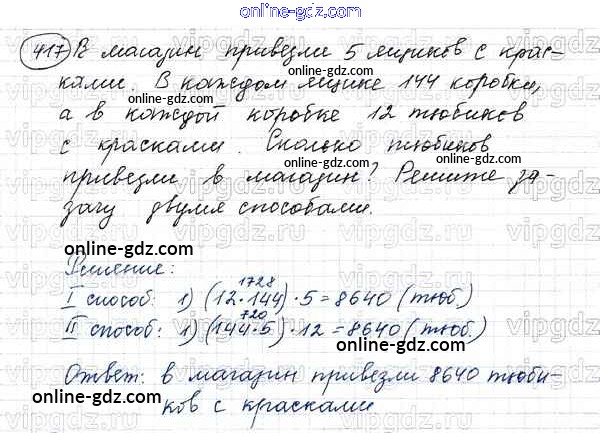 online-gdz.com
417 В магазин привезли 5 ящиков с крас-
ками. В каждом ящике 144 коробки,
online-gdz.com online-gdz.com
а в каждой коробке 12 тюбиков
online-gdz.com
с красками. Сколько тюбиков
online-gdz.com
привезли в магазин? Решите за-
дачу двумя способами.
online-gdz.com
online-gdz.com
Решение:
1728
I способ: 1) (12·144)·5=8640 (тюб.)
720
II способ: 1) (144·5)·12=8640 (тюб.)
online-gdz.com
Ответ: в магазин привезли 8640 тюби-
online-gdz.com
ков с красками
online-gdz.com
vipgdz